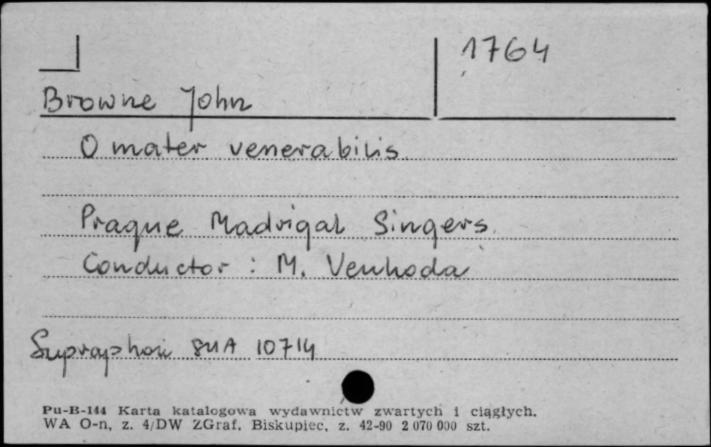 1764
Browne John
O mater venerabilis
Prague Madrigal Singers
Conductor : M. Venhoda
Supraphon SUA 10714
Pu-B-144 Karta katalogowa wydawnictw zwartych i ciągłych.
WA O-n, z. 4/DW ZGraf. Biskupiec, z. 42-90 2 070 000 szt.